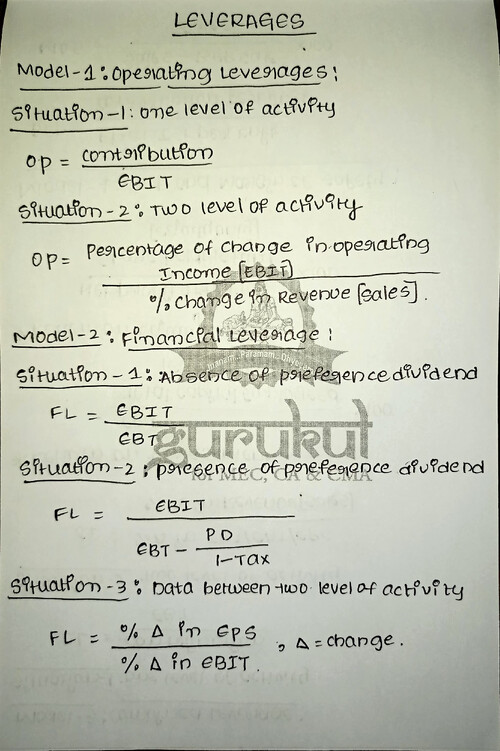 LEVERAGES
Model-1: Operating Leverages:
Situation-1: one level of activity
OP = contribution
EBIT
Situation-2: Two level of activity
OP = Percentage of change in operating
Income [EBIT]
% change in Revenue [sales].
Model-2: Financial Leverage:
Situation-1: Absence of preference dividend
FL = EBIT
EBT
gurukul
Situation-2: presence of preference dividend
FOR MEC, CA & CMA
FL = EBIT
EBT - PD
1-Tax
Situation-3: Data between two level of activity
FL = % Δ in EPS
% Δ in EBIT. , Δ = change.